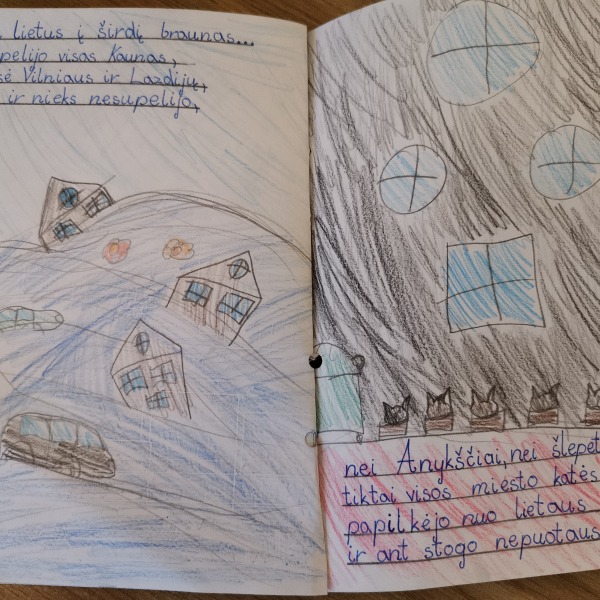 lietus į širdį braunas...
supelijo visas Kaunas,
Vilniaus ir Lazdijų,
ir nieks nesupelijo,
nei Anykščiai, nei šlepet
tiktai visos miesto katės
papilkėjo nuo lietaus
ir ant stogo nepuotaus